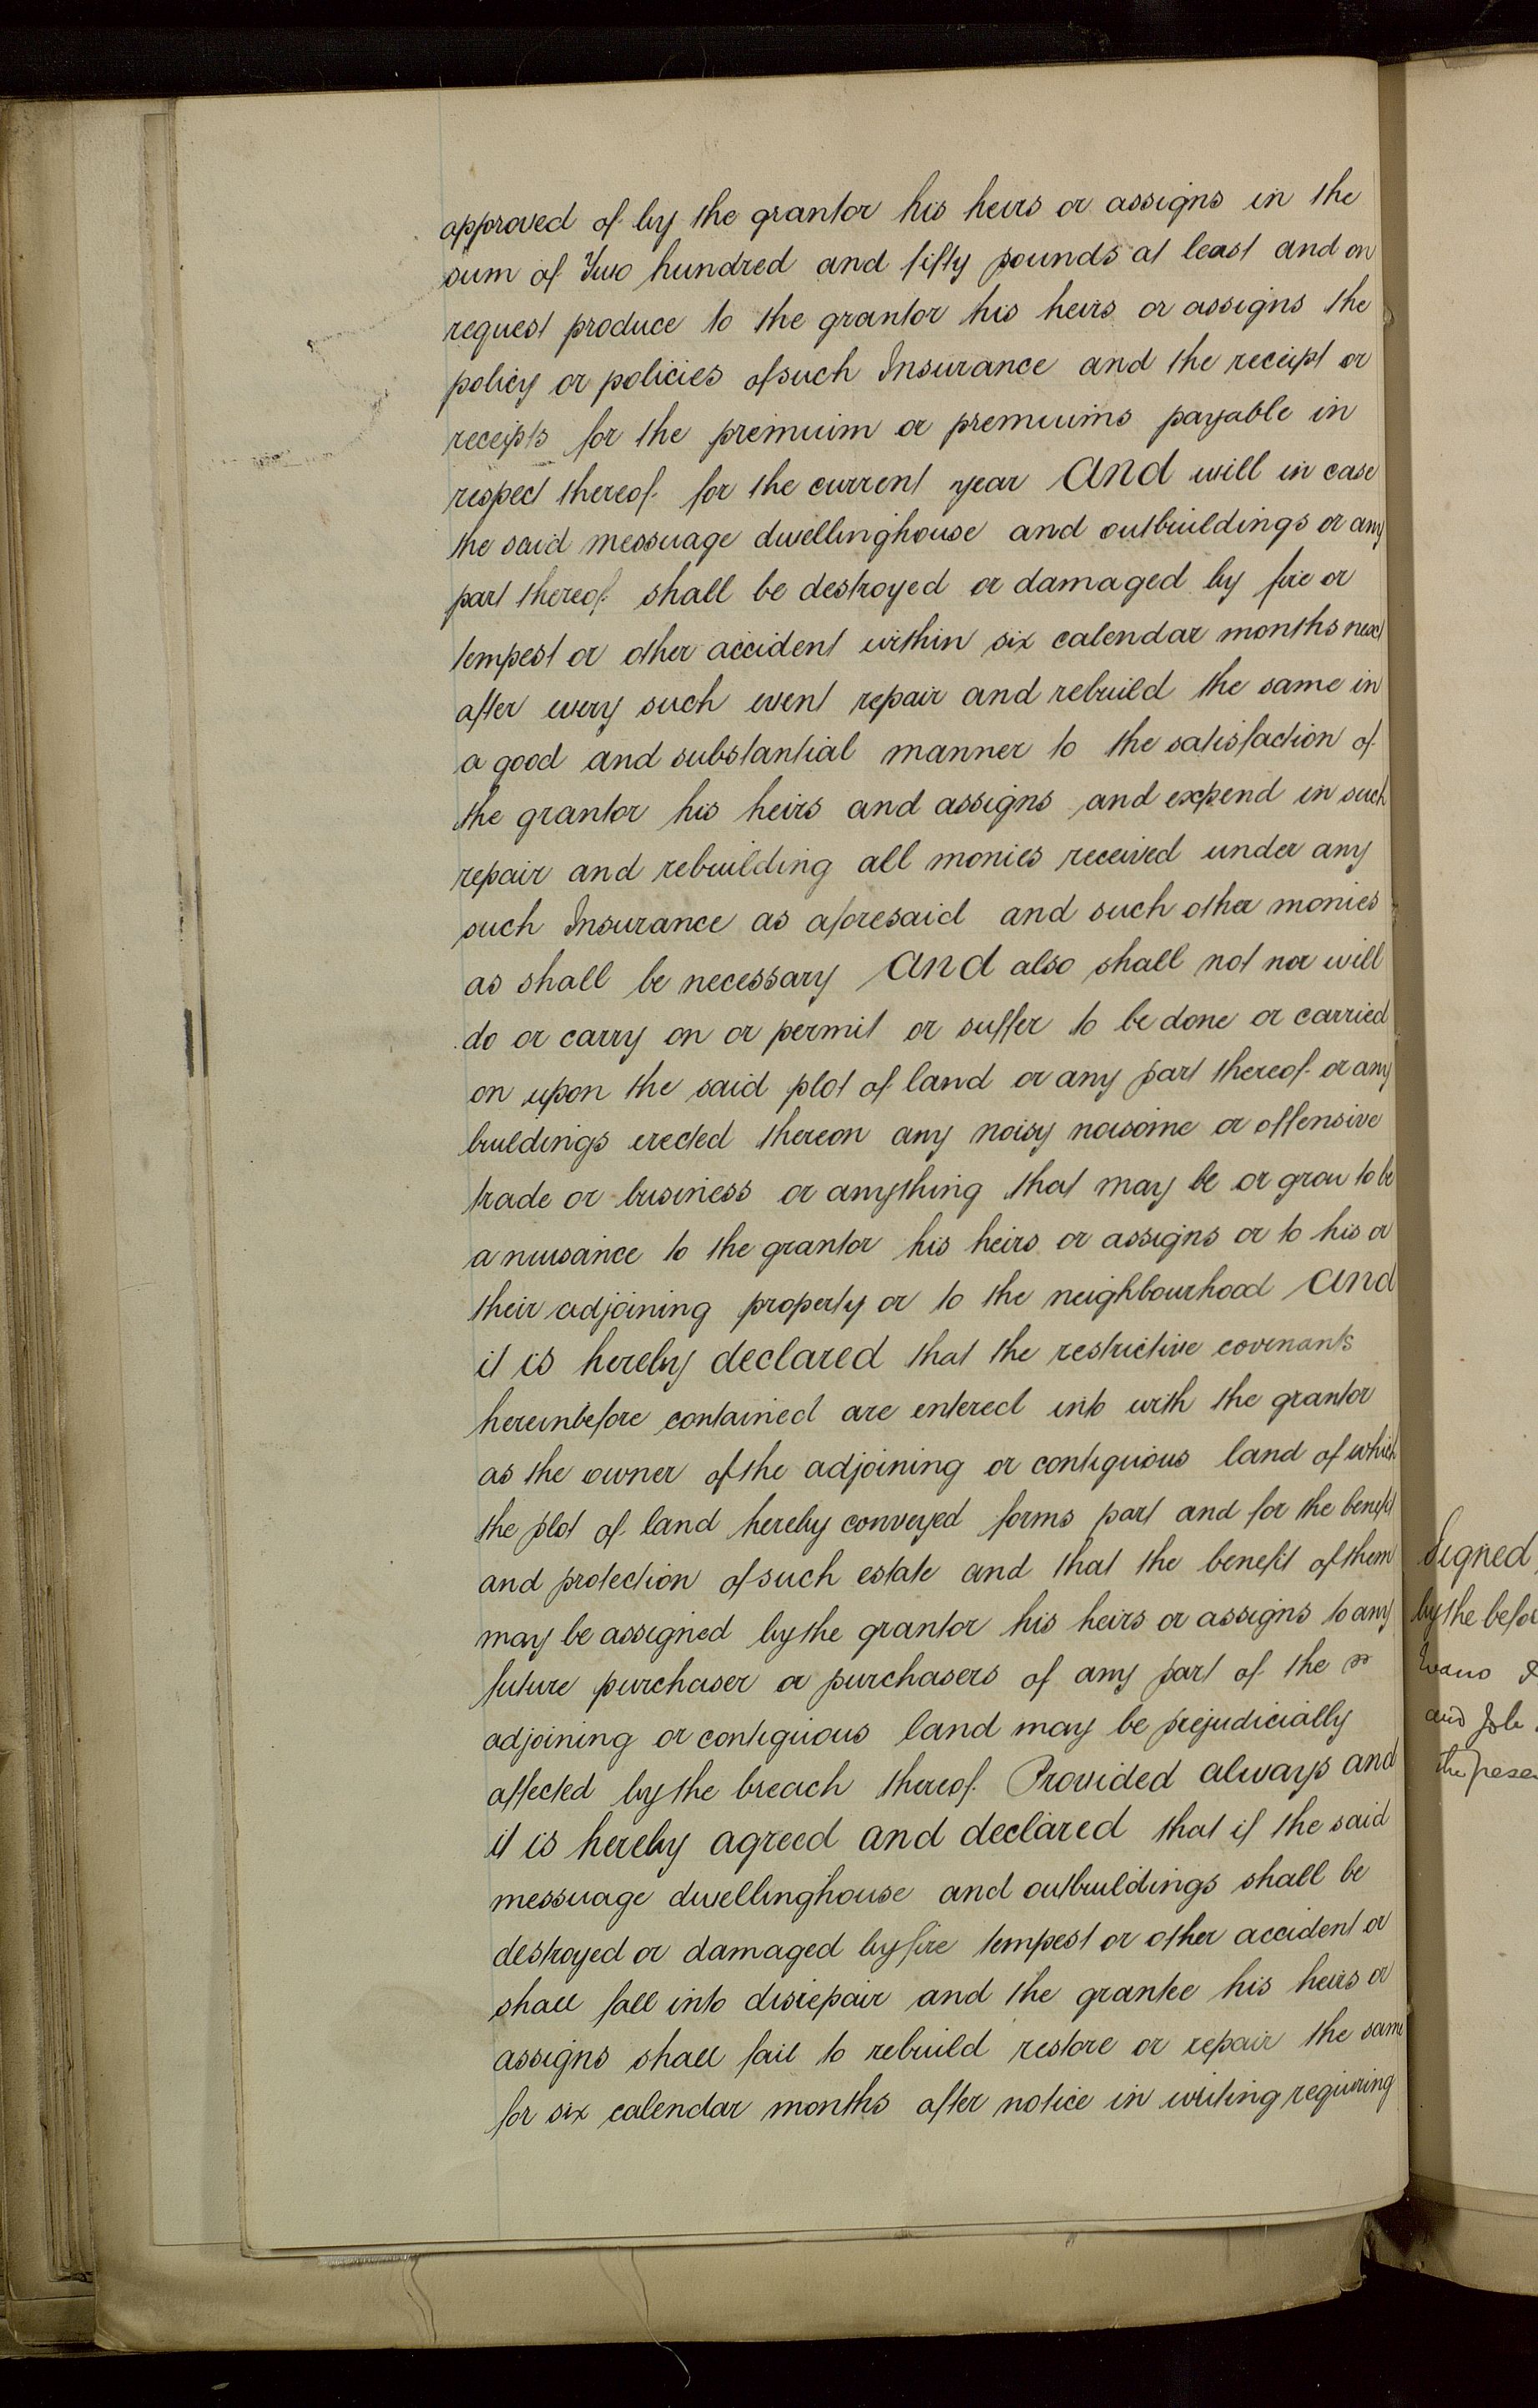 approved of by the grantor his heirs or assigns in the
sum of Two hundred and fifty pounds at least and on
request produce to the grantor his heirs or assigns the
policy or policies of such Insurance and the receipt or
receipts for the premium or premiums payable in
respect thereof for the current year And will in case
the said messuage dwellinghouse and outbuildings or any
part thereof shall be destroyed or damaged by fire or
tempest or other accident within six calendar months next
after every such event repair and rebuild the same in
a good and substantial manner to the satisfaction of
the grantor his heirs and assigns and expend in such
repair and rebuilding all monies received under any
such Insurance as aforesaid and such other monies
as shall be necessary And also shall not nor will
do or carry on or permit or suffer to be done or carried
on upon the said plot of land or any part thereof or any
buildings erected thereon any noisy noisome or offensive
trade or business or anything that may be or grow to be
a nuisance to the grantor his heirs or assigns or to his or
their adjoining property or to the neighbourhood And
it is hereby declared that the restrictive covenants
hereinbefore contained are entered into with the grantor
as the owner of the adjoining or contiguous land of which
the plot of land hereby conveyed forms part and for the benefit
and protection of such estate and that the benefit of them
may be assigned by the grantor his heirs or assigns to any
future purchaser or purchasers of any part of the
adjoining or contiguous land may be prejudicially
affected by the breach thereof. Provided always and
it is hereby agreed and declared that if the said
messuage dwellinghouse and outbuildings shall be
destroyed or damaged by fire tempest or other accident or
shall fall into disrepair and the grantee his heirs or
assigns shall fail to rebuild restore or repair the same
for six calendar months after notice in writing requiring
Signed
by the befor
Evans &
and Job
the presen